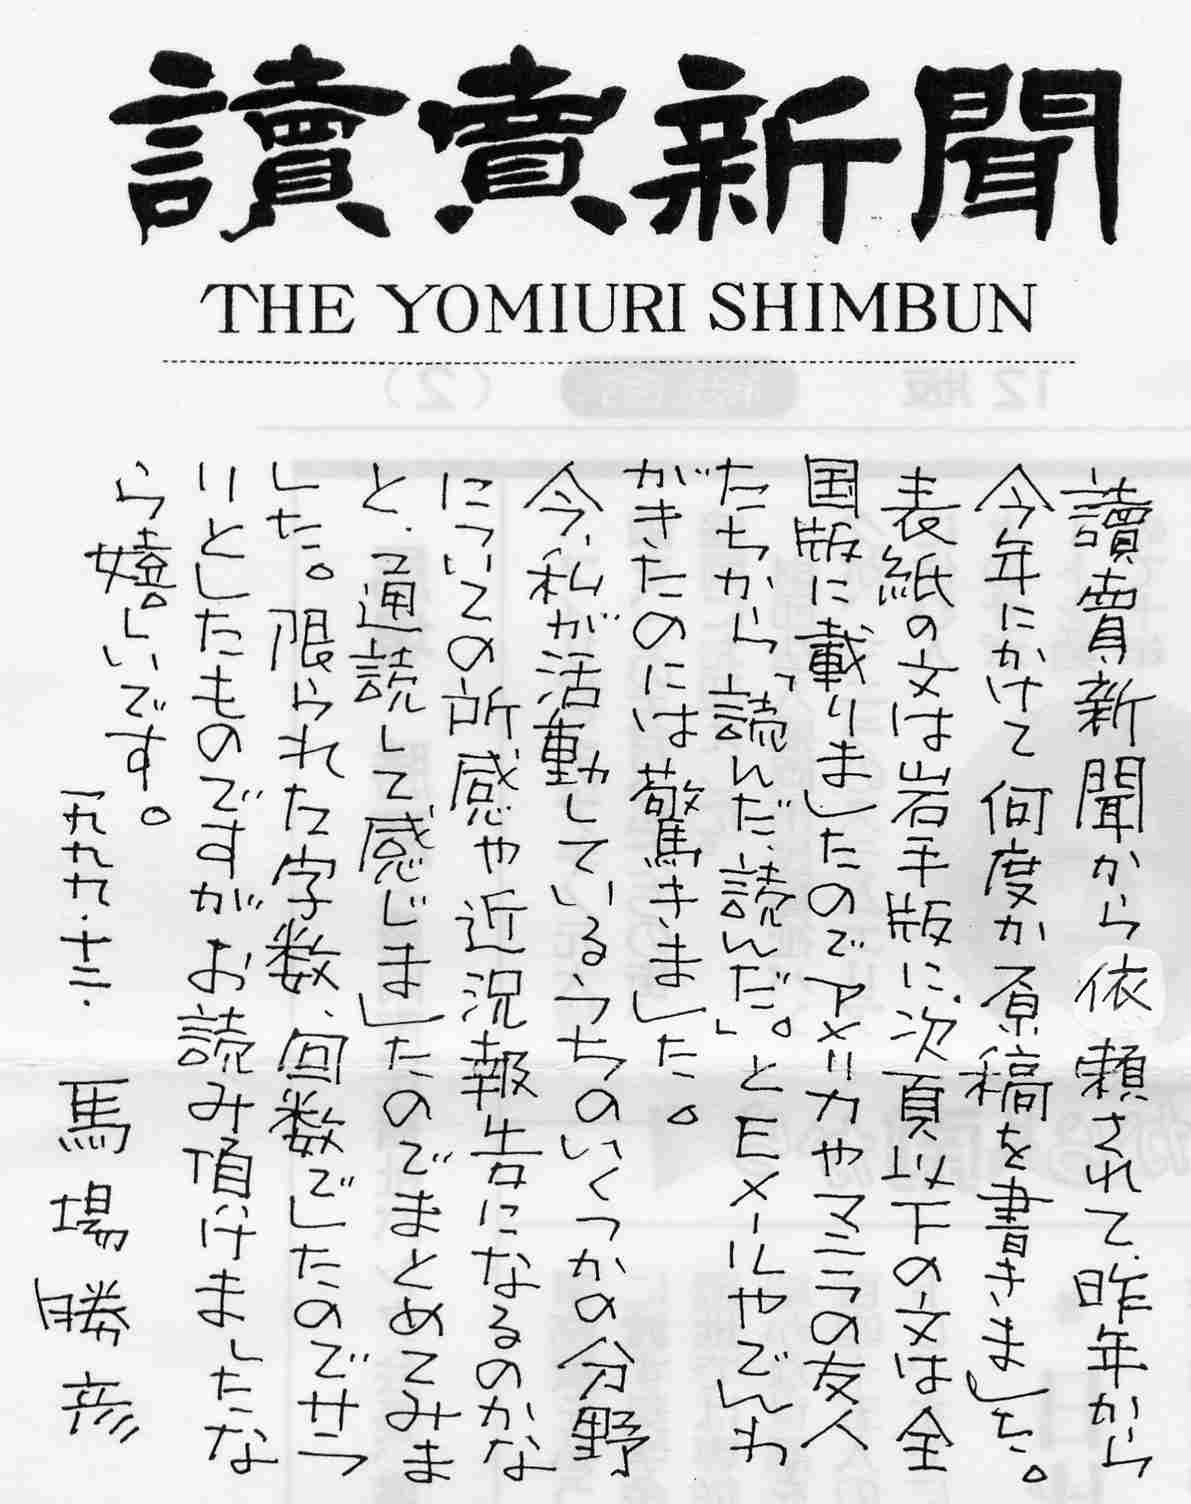 讀賣新聞
THE YOMIURI SHIMBUN
讀賣新聞から依頼されて、昨年から
今年にかけて何度か原稿を書きました。
表紙の文は岩手版に、次頁以下の文は全
国版に載りましたのでアメリカやマニラの友人
たちから「読んだ、読んだ。」とEメールやでんわ
がきたのには驚きました。
今、私が活動しているうちのいくつかの分野
についての所感や近況報告になるのかな
と、通読して感じましたのでまとめてみま
した。限られた字数、回数でしたのでサラ
リとしたものですがお読み頂けましたな
ら嬉しいです。
一九九九・十二・ 馬場勝彦